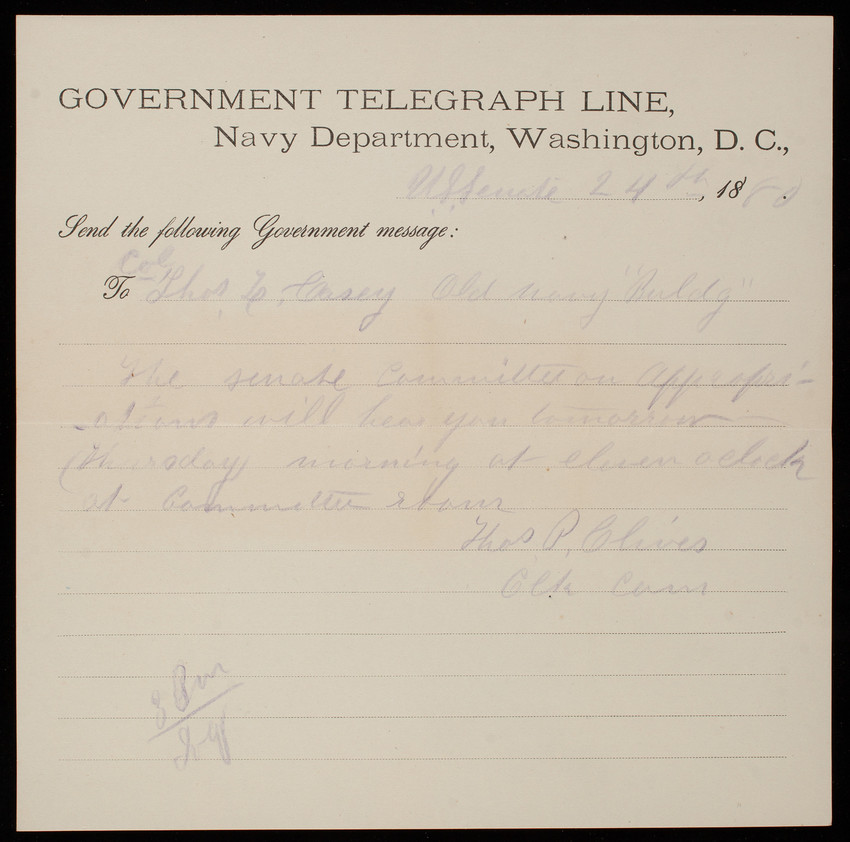 GOVERNMENT TELEGRAPH LINE,
Navy Department, Washington, D. C.,
U.S. Senate 24th, 1880.
Send the following Government message:
Col
To Thos L. Casey Old Navy "Buldg"
The senate Committee on Appropri-
-ations will hear you tomorrow
(Thursday) morning at eleven oclock
at Committee room
Thos P.
Clk Com